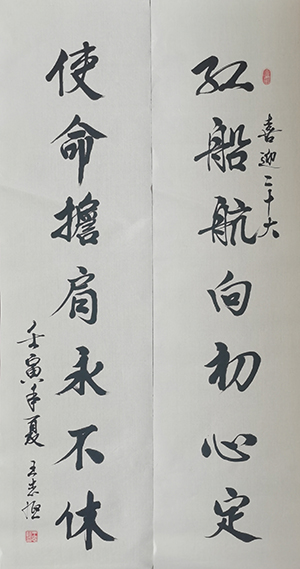 红船航向初心定
喜迎二十大
使命擔肩永不休
壬寅年夏 王志